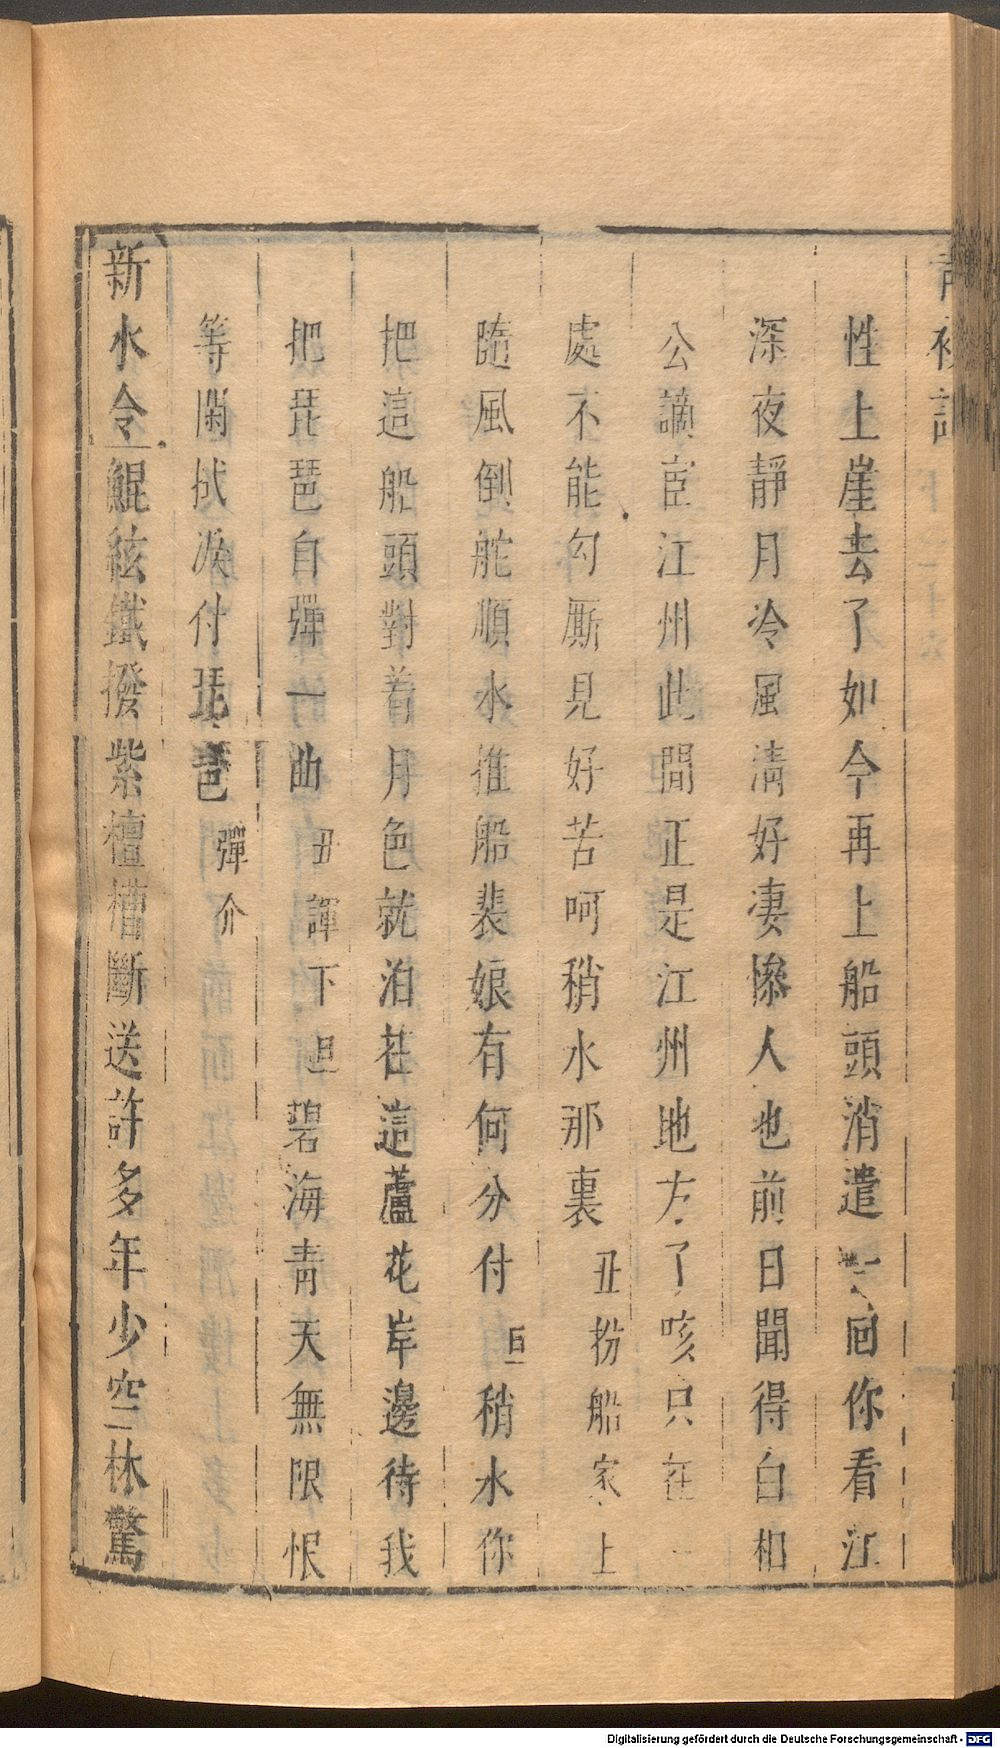 性上崖去了如今再上船頭消遣一回你看江
深夜靜月冷風清好凄慘人也前日聞得白相
公謫宦江州此間正是江州地方了咳只在一
處不能勾厮見好苦呵稍水那裏丑扮船家上
隨風倒舵順水推船裴娘有何分付旦稍水你
把這船頭對着月色就泊在這蘆花岸邊待我
把琵琶自彈一曲丑諢下旦碧海青天無限恨
等閑拭淚付琵琶彈介
新水令鯤絃鐵撥紫檀槽斷送許多年少空林驚
Digitalisierung gefördert durch die Deutsche Forschungsgemeinschaft - DFG